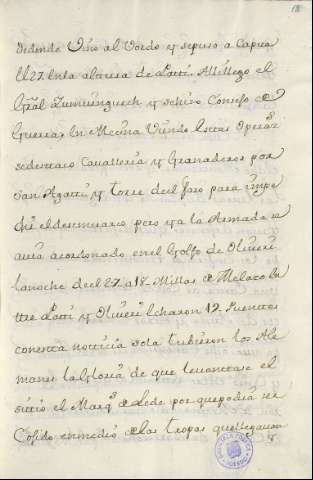 18
dedende Vino al Vordo y sepuso a Capea
El 27 en la altura de Patti. Millego el
Gral Zumiungueh y sehizo Consejo de
Guerra. En Mecina Viendo Estas Operaz
sedestaco Cavalleria y Granaderos por
San Agatta y torre del faro para impe
dir el desenvarco pero ya la Armada se
avia acordonado en el Golfo de Oliveri
la noche del 27 a 18 Millas de Melazo En
tre Patti y Oliveri Echaron 12 Puentes
con esta notticia sola tubieron los Ale
manes la gloria de que levanttase el
sittio el Marqs de Lede por que podia ser
Cojido en medio de las tropas que llegavan